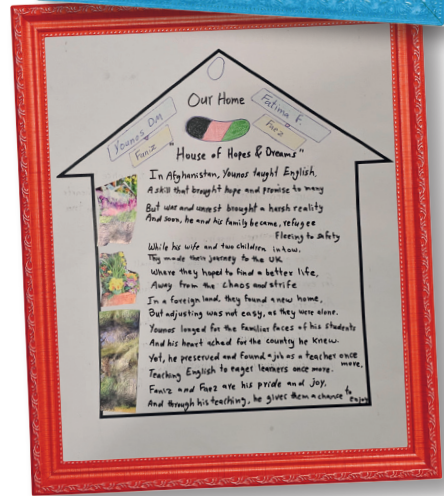 Our Home
Younos DM
Faniz
Fatima F.
Faez
"House of Hopes & Dreams"
In Afghanistan, Younos taught English,
A skill that brought hope and promise to many
But war and unrest brought a harsh reality
And soon, he and his family became, refugee
Fleeing to safety
While his wife and two children in tow,
They made their journey to the UK
Where they hoped to find a better life,
Away from the chaos and strife
In a foreign land, they found a new home,
But adjusting was not easy, as they were alone.
Younos longed for the familiar faces of his students
And his heart ached for the country he knew.
Yet, he preserved and found a job as a teacher once more,
Teaching English to eager learners once more.
Faniz and Faez are his pride and joy.
And through his teaching, he gives them a chance to enjoy